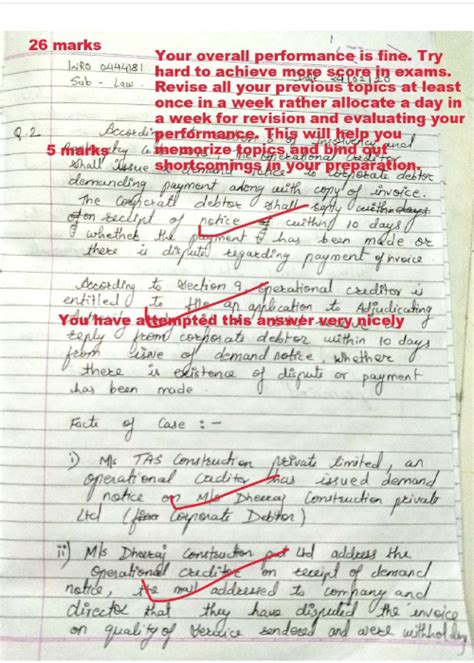 26 marks
Your overall performance is fine. Try
WRO 0444181
hard to achieve more score in exams.
Sub - Law
Revise all your previous topics at least
once in a week rather allocate a day in
a week for revision and evaluating your
Q.2
performance. This will help you
5 marks
memorize topics and bind out
shortcomings in your preparation.
shall issue corporate debtor
demanding payment along with copy of invoice.
The corporate debtor shall reply within days
on receipt of notice of within 10 days
whether the payment has been made or
there is dispute regarding payment of invoice
According to Section 9 operational creditor is
entitled to file an application to Adjudicating
You have attempted this answer very nicely
reply from corporate debtor within 10 days
from issue of demand notice. whether
there is existence of dispute or payment
has been made.
Facts of Case : -
i) M/s TAS Construction private limited, an
operational Creditor has issued demand
notice on M/s Dheeraj Construction private
Ltd (Corporate Debtor)
ii) M/s Dheeraj Construction Ltd address the
Operational creditor on receipt of demand
notice, mail addressed to company and
director that they have disputed the invoice
on quality of service rendered and were withholding